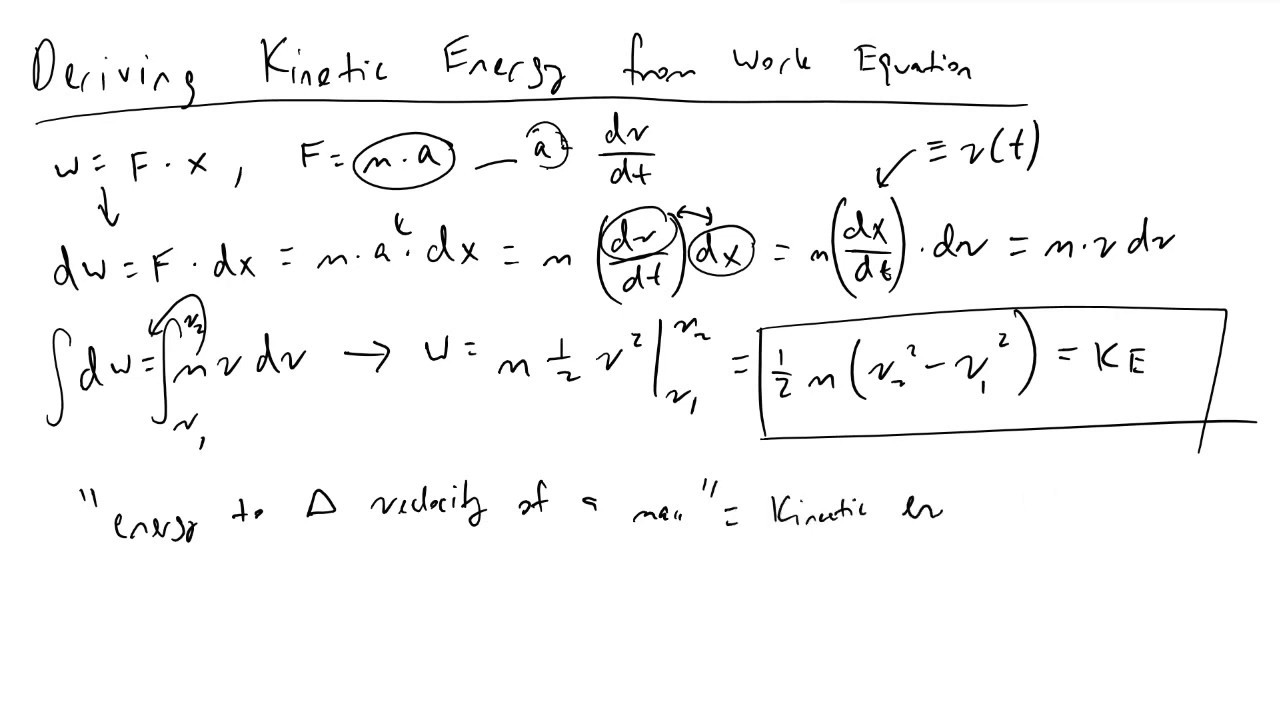 Deriving Kinetic Energy from Work Equation
W = F · x , F = m · a — a = dv/dt ≡ v(t)
dW = F · dx = m · a · dx = m (dv/dt) dx = m (dx/dt) · dv = m · v dv
∫dW = ∫_{v₁}^{v₂} m v dv → W = m 1/2 v² |_{v₁}^{v₂} = 1/2 m (v₂² - v₁²) = KE
"energy to Δ velocity of a mass" = Kinetic en